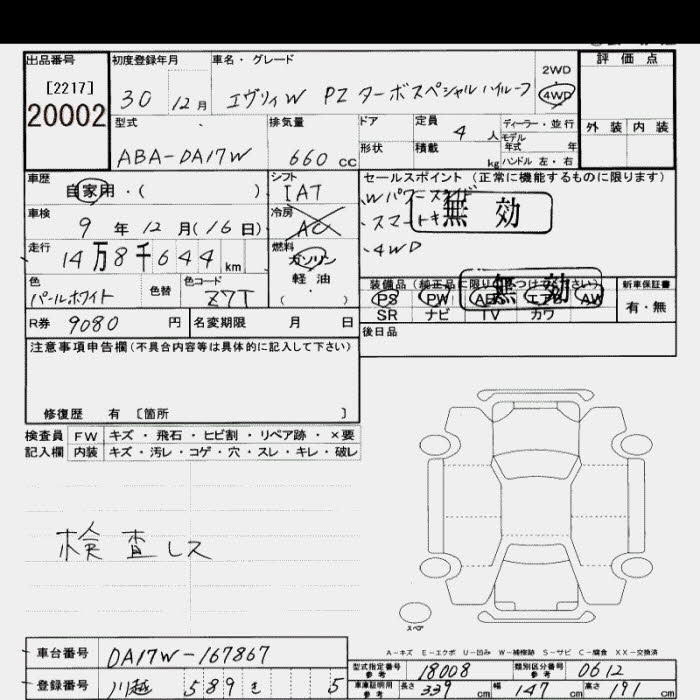 出品番号 初度登録年月 車名・グレード 評価点
[2217] 2WD
20002 30 12月 エヴリィW PZ ターボスペシャルハイルーフ 4WD
型式 排気量 ドア 定員 4人 ディーラー・並行 外装 内装
モデル年式 年
ABA-DA17W 660cc 形状 積載 kg ハンドル 左・右
車歴 シフト セールスポイント (正常に機能するものに限ります)
自家用・( ) IAT ・Wパワースライド
車検 冷房 ・スマートキー 無効
9年12月(16日) AC ・4WD
走行 燃料
14万8千644km ガソリン
軽油
( )
装備品(純正品に限り○をつけてください) 新車保証書
無効
色 色替 色コード PS PW AB エアロ AW 有・無
パールホワイト Z7T SR ナビ TV カワ
R券 9080円 名変期限 月 日 後日品
注意事項申告欄(不具合内容等は具体的に記入して下さい)
修復歴 有 [箇所 ]
検査員 FW キズ・飛石・ヒビ割・リペア跡・×要
記入欄 内装 キズ・汚レ・コゲ・穴・スレ・キレ・破レ
検査レス
スペア
A-キズ E-エクボ U-凹み W-補修跡 S-サビ C-腐食 XX-交換済
車台番号 DA17W-167867 型式指定番号 参考 18008 類別区分番号 参考 0612
登録番号 川越 589 を 5 車庫証明用 参考 長さ 339cm 幅 147cm 高さ 191cm